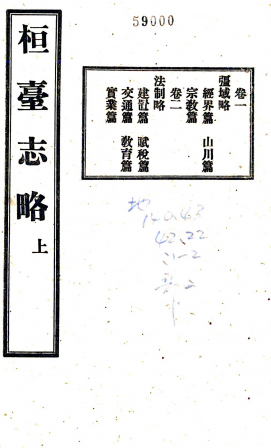 59000
桓臺志略
上
卷一
彊域略
經界篇 山川篇
宗教篇
卷二
法制略
建置篇 賦稅篇
交通篇 教育篇
實業篇